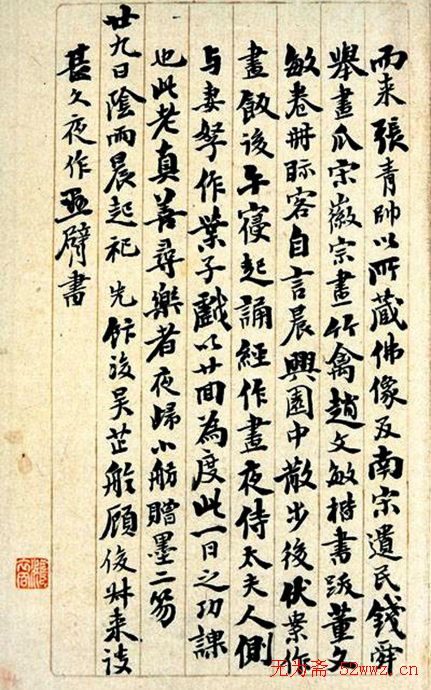 而来張青帥以所藏佛像及南宋遺民錢舜
舉畫瓜宋徽宗畫竹禽趙文敏楷書跋董文
敏卷冊眎客自言晨興園中散步後伏案作
畫飯後午寢起誦經作畫夜侍太夫人側
与妻孥作葉子戲以廿回為度此一日之功課
也此老真善尋樂者夜歸小舫贈墨二笏
廿九日陰雨晨起祀先飰後吳芷舲顧俊艸来談
甚久夜作懸臂書
无为斋-52wwz.cn